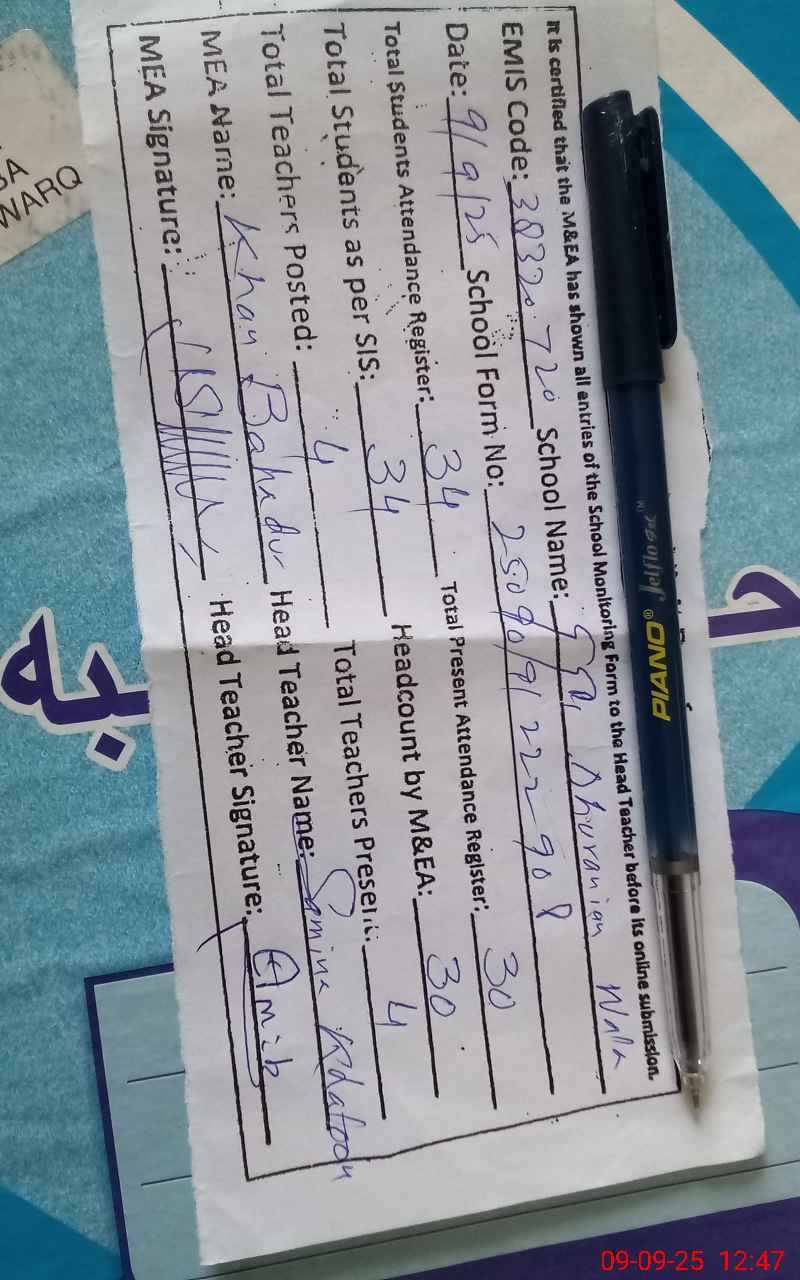 It is certified that the M&EA has shown all entries of the School Monitoring Form to the Head Teacher before its online submission.
EMIS Code: 38320720 School Name: Dhuranian Wala
Date: 9/9/25 School Form No:
Total Students Attendance Register: 34 Total Present Attendance Register: 30
Total Students as per SIS: 34 Headcount by M&EA: 30
Total Teachers Posted: 4 Total Teachers Present: 4
MEA Name: Khan Bahadur Head Teacher Name: Samina
MEA Signature: Head Teacher Signature:
PIANO®
WARQ
به
09-09-25 12:47